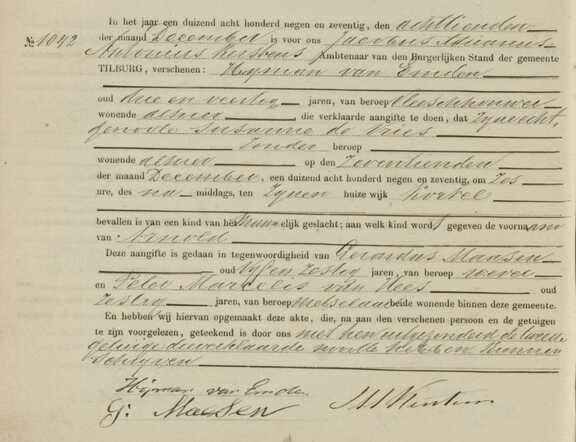 In het jaar een duizend acht honderd negen en zeventig, den achttienden
№ 1042 der maand December is voor ons Jacobus Adrianus
Antonius Kerstens Ambtenaar van den Burgerlijken Stand der gemeente
TILBURG, verschenen: Heyman van Emden
oud drie en veertig jaren, van beroep vleeschhouwer
wonende alhier die verklaarde aangifte te doen, dat zyne echt,
genoote Susanna de Vries
zonder beroep
wonende alhier op den zeventienden
der maand December, een duizend acht honderd negen en zeventig, om zes
ure, des na middags, ten zynen huize wijk Korvel
bevallen is van een kind van het mannelijk geslacht; aan welk kind wordt gegeven de voornaam
van Arnold
Deze aangifte is gedaan in tegenwoordigheid van Gerardus Maasen
oud vyf en zestig jaren, van beroep wever
en Peter Marcelis van Hees oud
zestig jaren, van beroep metselaar beide wonende binnen deze gemeente.
En hebben wij hiervan opgemaakt deze akte, die, na aan den verschenen persoon en de getuigen
te zijn voorgelezen, geteekend is door ons met hen uitgezonderd de tweede
getuige die verklaarde niet te kunnen
schryven
Hijman van Emden
G: Maesen